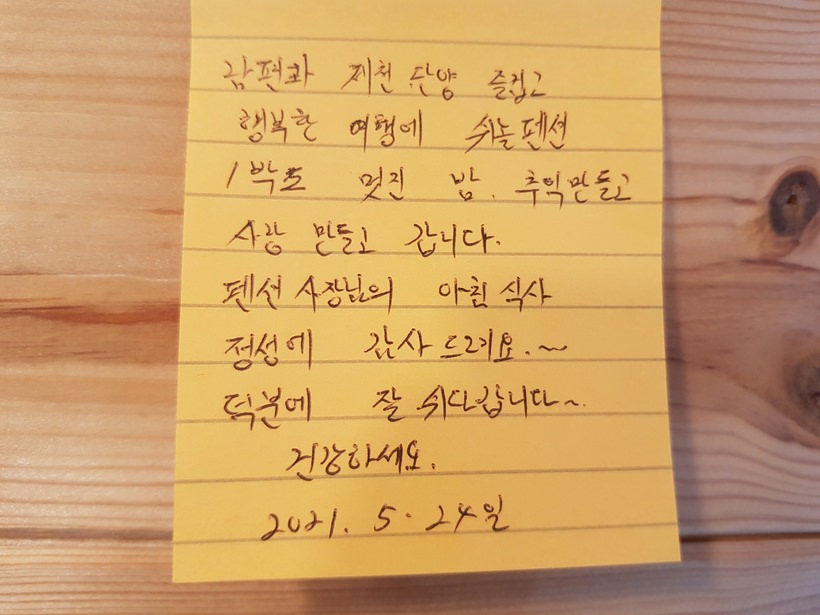 남편과 제천 단양 즐겁고
행복한 여행에 쉬놀펜션
1박도 멋진 밤. 추억만들고
사랑 만들고 갑니다.
펜션 사장님의 아침 식사
정성에 감사 드려요.~
덕분에 잘 쉬다갑니다~.
건강하세요.
2021. 5. 24일